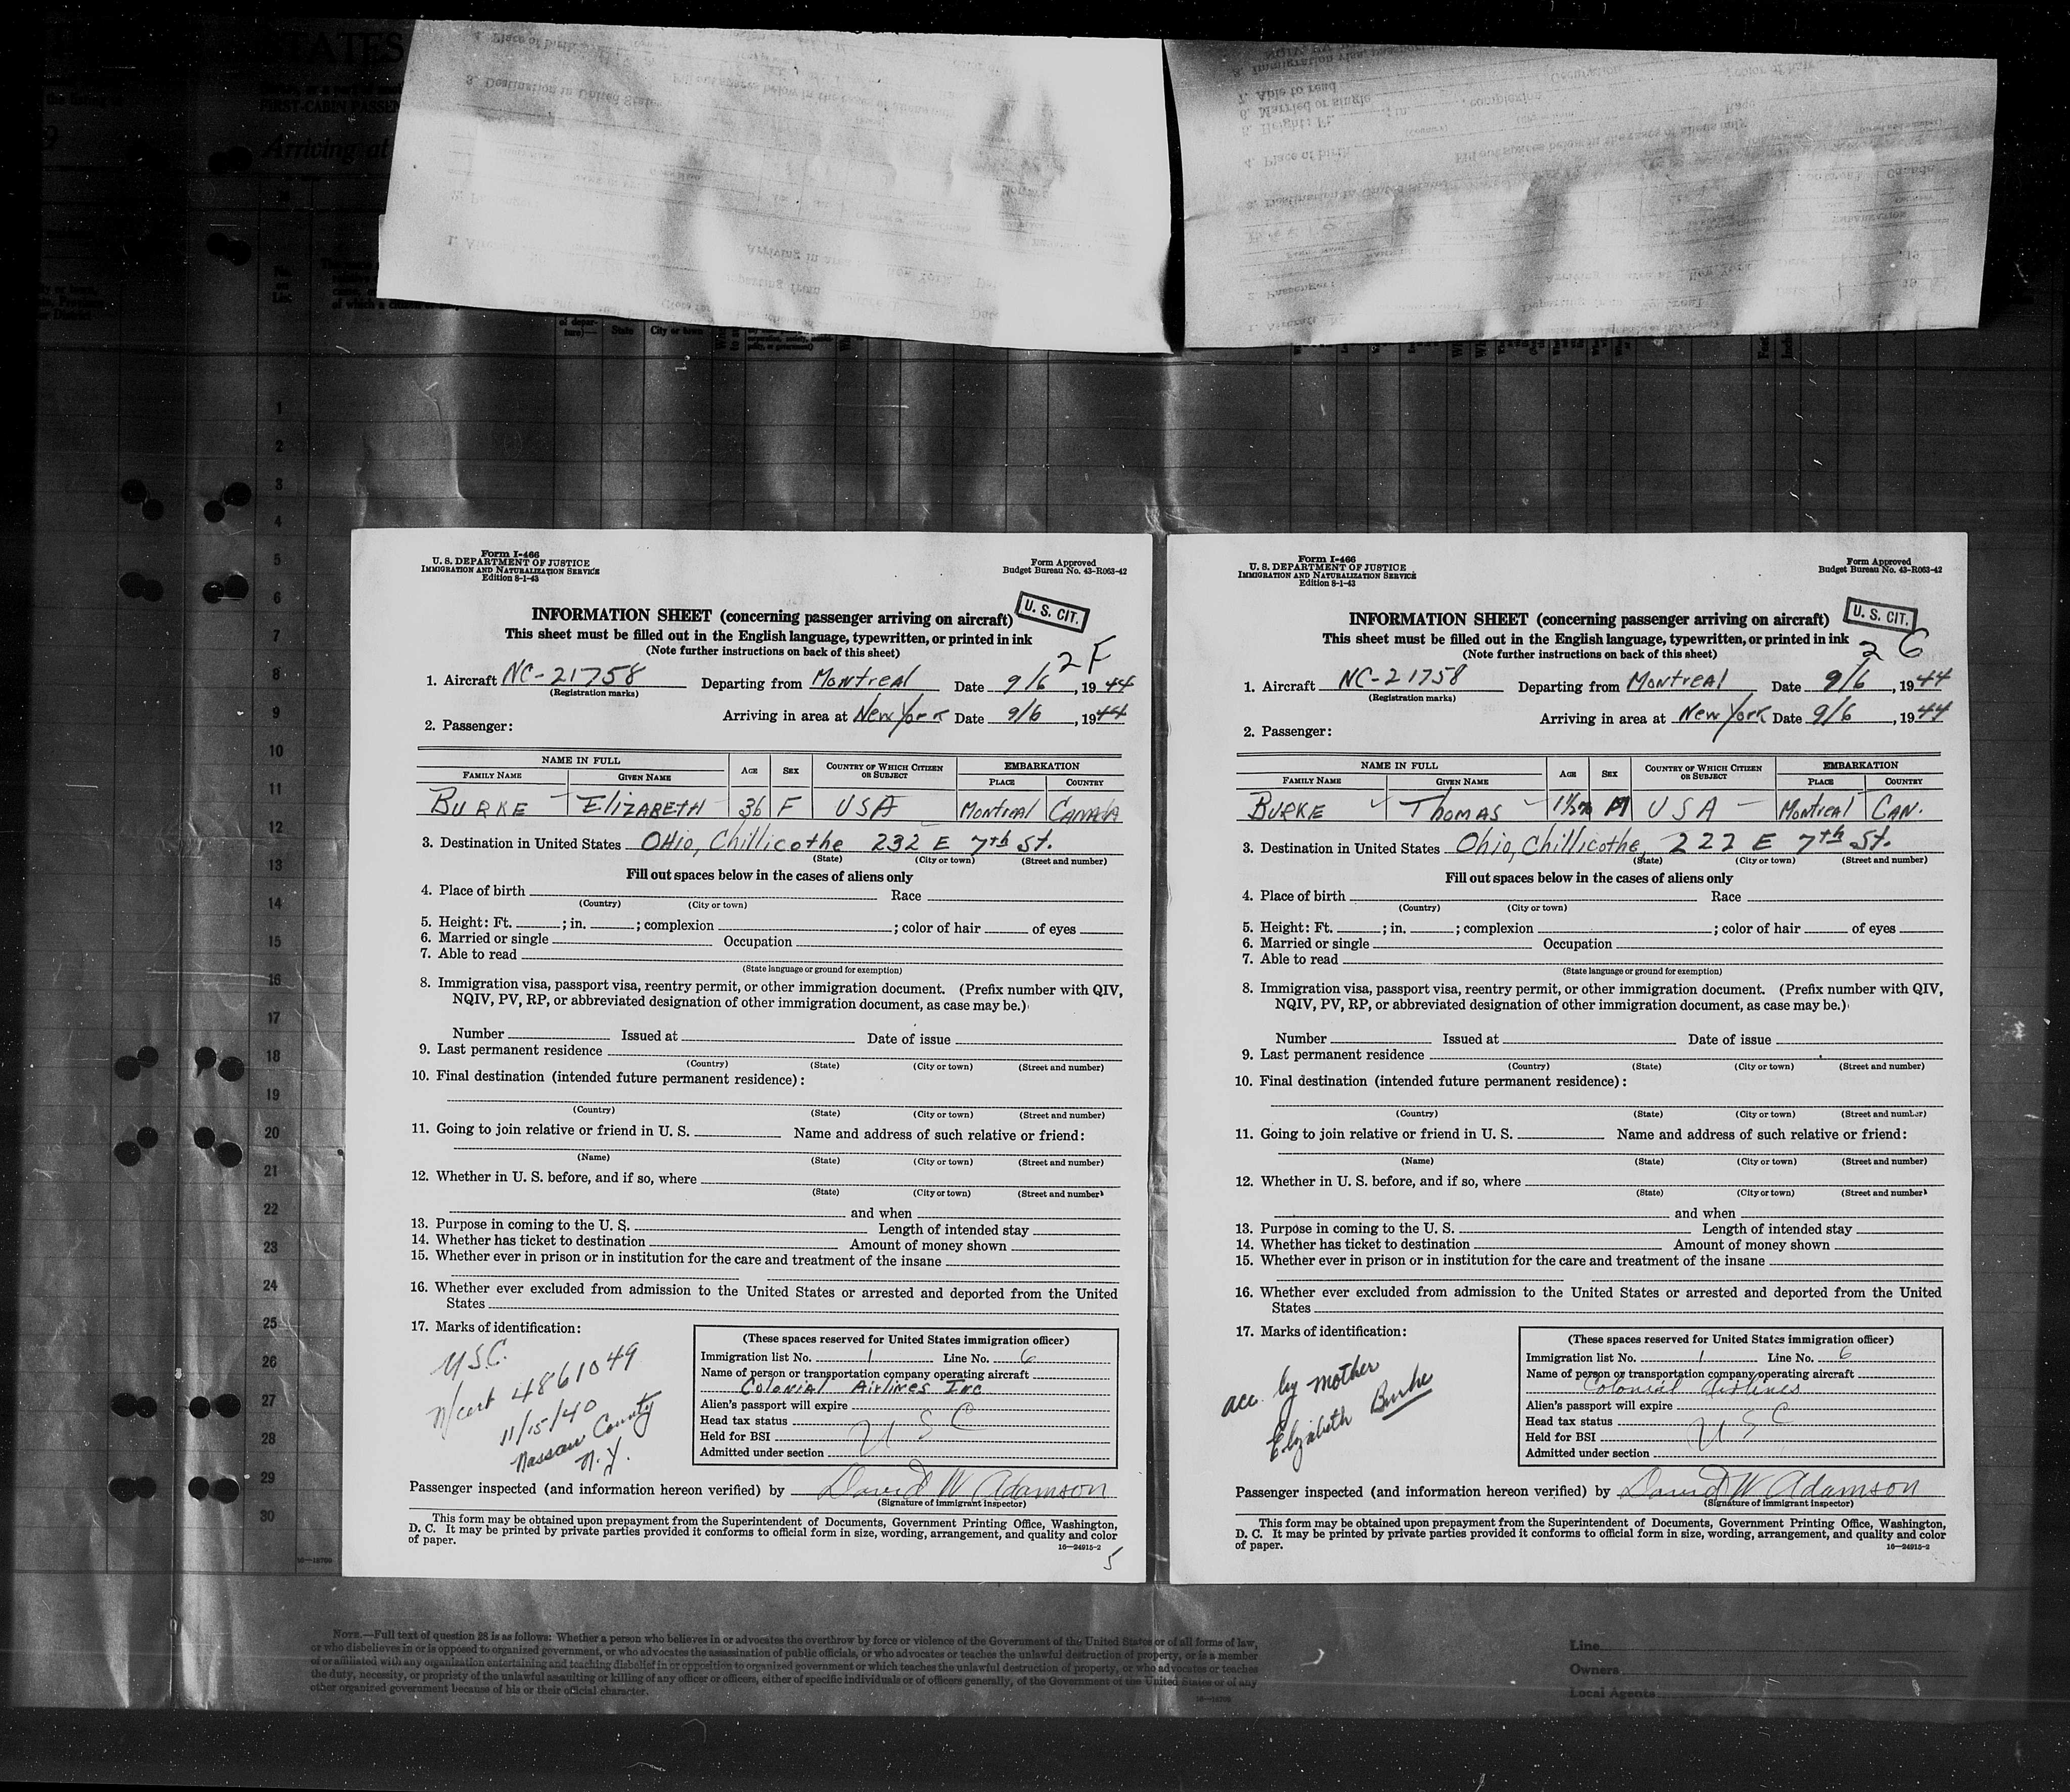 STATES
FIRST-CABIN PASSEN
Arriving at
No. on List
State
City or town
1
2
3
4
5
6
7
8
9
10
11
12
13
14
15
16
17
18
19
20
21
22
23
24
25
26
27
28
29
30
Form I-466
U. S. DEPARTMENT OF JUSTICE
IMMIGRATION AND NATURALIZATION SERVICE
Edition 8-1-43
Form Approved
Budget Bureau No. 43-R063-42
U. S. CIT.
INFORMATION SHEET (concerning passenger arriving on aircraft)
This sheet must be filled out in the English language, typewritten, or printed in ink
(Note further instructions on back of this sheet)
2 F
1. Aircraft NC-21758 Departing from Montreal Date 9/6, 1944
(Registration marks)
Arriving in area at New York Date 9/6, 1944
2. Passenger:
NAME IN FULL AGE SEX COUNTRY OF WHICH CITIZEN OR SUBJECT EMBARKATION
FAMILY NAME GIVEN NAME PLACE COUNTRY
BURKE ELIZABETH 36 F USA Montreal CANADA
3. Destination in United States OHio, Chillicothe 232 E 7th St.
(State) (City or town) (Street and number)
Fill out spaces below in the cases of aliens only
4. Place of birth Race
(Country) (City or town)
5. Height: Ft. ; in. ; complexion ; color of hair of eyes
6. Married or single Occupation
7. Able to read
(State language or ground for exemption)
8. Immigration visa, passport visa, reentry permit, or other immigration document. (Prefix number with QIV,
NQIV, PV, RP, or abbreviated designation of other immigration document, as case may be.)
Number Issued at Date of issue
9. Last permanent residence
(Country) (State) (City or town) (Street and number)
10. Final destination (intended future permanent residence):
(Country) (State) (City or town) (Street and number)
11. Going to join relative or friend in U. S. Name and address of such relative or friend:
(Name) (State) (City or town) (Street and number)
12. Whether in U. S. before, and if so, where
(State) (City or town) (Street and number)
and when
13. Purpose in coming to the U. S. Length of intended stay
14. Whether has ticket to destination Amount of money shown
15. Whether ever in prison or in institution for the care and treatment of the insane
16. Whether ever excluded from admission to the United States or arrested and deported from the United
States
17. Marks of identification:
U.S.C.
N/cert 4861049
11/15/40
Nassau County
N.Y.
(These spaces reserved for United States immigration officer)
Immigration list No. 1 Line No. 6
Name of person or transportation company operating aircraft
Colonial Airlines Inc
Alien's passport will expire
Head tax status U S C
Held for BSI
Admitted under section
Passenger inspected (and information hereon verified) by David W Adamson
(Signature of immigrant inspector)
This form may be obtained upon prepayment from the Superintendent of Documents, Government Printing Office, Washington,
D. C. It may be printed by private parties provided it conforms to official form in size, wording, arrangement, and quality and color
of paper.
16-24915-2
5
Form I-466
U. S. DEPARTMENT OF JUSTICE
IMMIGRATION AND NATURALIZATION SERVICE
Edition 8-1-43
Form Approved
Budget Bureau No. 43-R063-42
U. S. CIT.
INFORMATION SHEET (concerning passenger arriving on aircraft)
This sheet must be filled out in the English language, typewritten, or printed in ink
(Note further instructions on back of this sheet)
2 G
1. Aircraft NC-21758 Departing from Montreal Date 9/6, 1944
(Registration marks)
Arriving in area at New York Date 9/6, 1944
2. Passenger:
NAME IN FULL AGE SEX COUNTRY OF WHICH CITIZEN OR SUBJECT EMBARKATION
FAMILY NAME GIVEN NAME PLACE COUNTRY
BURKE THOMAS M USA Montreal CAN.
3. Destination in United States Ohio, Chillicothe, 222 E 7th St.
(State) (City or town) (Street and number)
Fill out spaces below in the cases of aliens only
4. Place of birth Race
(Country) (City or town)
5. Height: Ft. ; in. ; complexion ; color of hair of eyes
6. Married or single Occupation
7. Able to read
(State language or ground for exemption)
8. Immigration visa, passport visa, reentry permit, or other immigration document. (Prefix number with QIV,
NQIV, PV, RP, or abbreviated designation of other immigration document, as case may be.)
Number Issued at Date of issue
9. Last permanent residence
(Country) (State) (City or town) (Street and number)
10. Final destination (intended future permanent residence):
(Country) (State) (City or town) (Street and number)
11. Going to join relative or friend in U. S. Name and address of such relative or friend:
(Name) (State) (City or town) (Street and number)
12. Whether in U. S. before, and if so, where
(State) (City or town) (Street and number)
and when
13. Purpose in coming to the U. S. Length of intended stay
14. Whether has ticket to destination Amount of money shown
15. Whether ever in prison or in institution for the care and treatment of the insane
16. Whether ever excluded from admission to the United States or arrested and deported from the United
States
17. Marks of identification:
acc. by mother
Elizabeth Burke
(These spaces reserved for United States immigration officer)
Immigration list No. 1 Line No. 6
Name of person or transportation company operating aircraft
Colonial Airlines
Alien's passport will expire
Head tax status U S C
Held for BSI
Admitted under section
Passenger inspected (and information hereon verified) by David W Adamson
(Signature of immigrant inspector)
This form may be obtained upon prepayment from the Superintendent of Documents, Government Printing Office, Washington,
D. C. It may be printed by private parties provided it conforms to official form in size, wording, arrangement, and quality and color
of paper.
16-24915-2
NOTE.—Full text of question 28 is as follows: Whether a person who believes in or advocates the overthrow by force or violence of the Government of the United States or of all forms of law,
or who disbelieves in or is opposed to organized government, or who advocates the assassination of public officials, or who advocates or teaches the unlawful destruction of property, or is a member
of or affiliated with any organization entertaining and teaching disbelief in or opposition to organized government or which teaches the unlawful destruction of property, or who advocates or teaches
the duty, necessity, or propriety of the unlawful assaulting or killing of any officer or officers, either of specific individuals or of officers generally, of the Government of the United States or of any
other organized government because of his or their official character.
Line
Owners
Local Agents